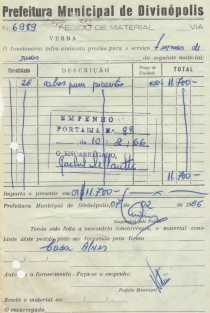 Prefeitura Municipal de Divinópolis
N. 6989 PEDIDO DE MATERIAL VIA
VERBA
O funcionário infra-assinado precisa para o serviço
ruas do seguinte material:
Quantidade DESCRIÇÃO Preço da Unidade TOTAL
20 cabos para 11.700
EMPENHO
PORTARIA N.
de 10 2 66
O ENCARREGADO,
11.700
Importa o presente em 11.700
Prefeitura Municipal de Divinópolis, 07 02 1966
Tendo sido feita a necessária concorrência, o material constante dêste pedido pode ser fornecido pela Firma
Casa Alves
Autorizo o fornecimento. Faça-se o empenho:
Prefeito Municipal
Recebi o material em
O encarregado